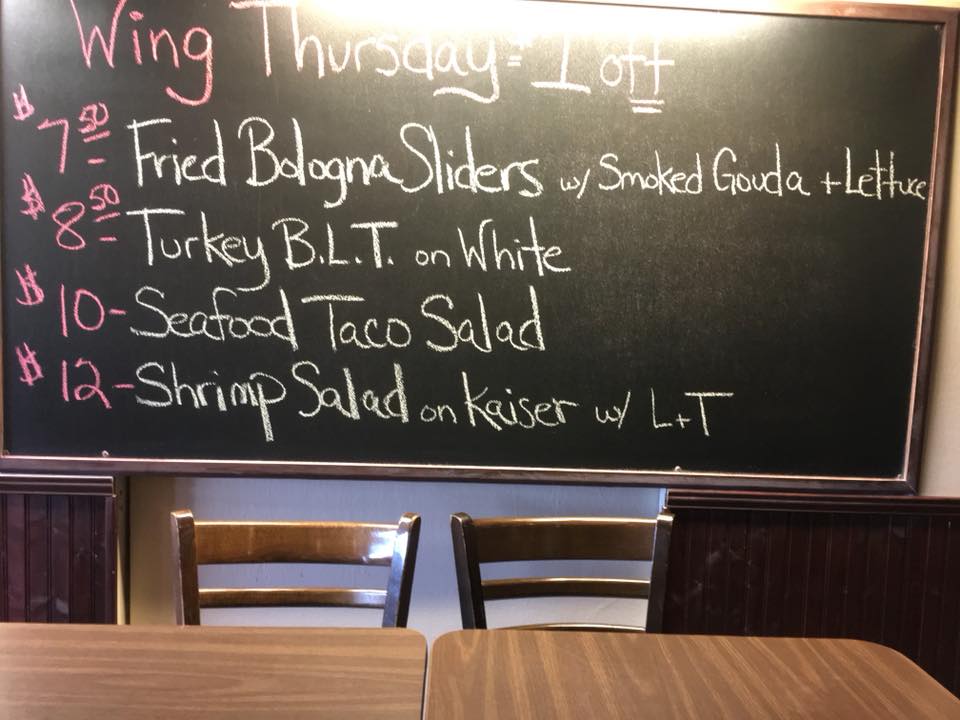 Wing Thursday = 1 off
$7.50 - Fried Bologna Sliders w/ Smoked Gouda + Lettuce
$8.50 - Turkey B.L.T. on White
$10 - Seafood Taco Salad
$12 - Shrimp Salad on Kaiser w/ L+T